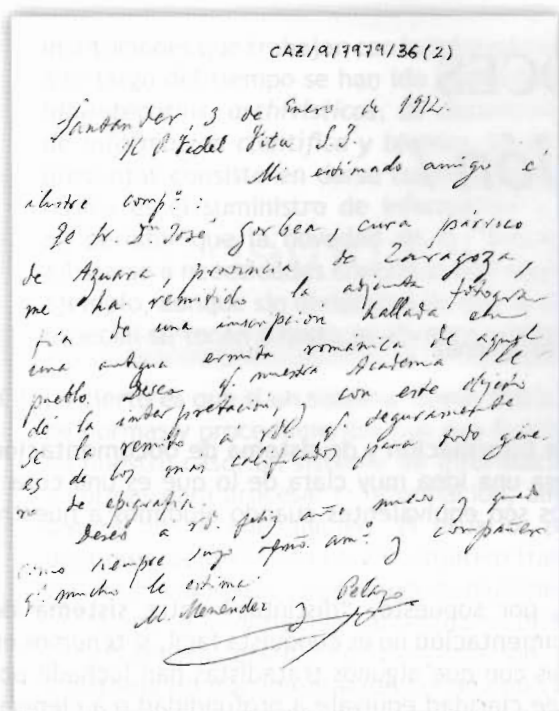 CAZ/9/7979/36(2)
Santander, 3 de Enero de 1912.
R. P. Fidel Fita S. J.
Mi estimado amigo e
ilustre compº:
El Sr Dn José Gorbea, cura párroco
de Azuara, provincia de Zaragoza,
me ha remitido la adjunta fotogra-
fía de una inscripción hallada en
una antigua ermita románica de aquel
pueblo. Desea qe nuestra Academia le
dé la interpretación, y con este objeto
se la remito a Vd, qe seguramente
es de los más calificados para todo géne-
ro de epigrafía.
Deseo a Vd feliz año nuevo y quedo
como siempre suyo afmo. amº y compañero
qe mucho le estima
M. Menéndez y Pelayo